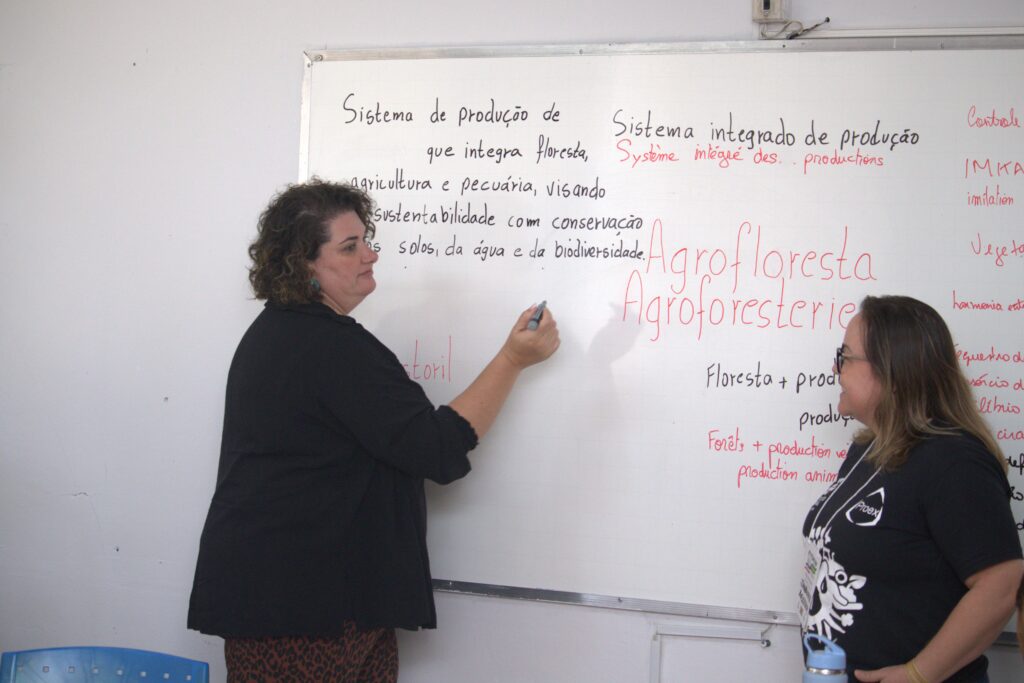 Sistema de produção de
que integra floresta,
agricultura e pecuária, visando
sustentabilidade com conservação
solos, da água e da biodiversidade.
Sistema integrado de produção
Système intégré des... productions
Agrofloresta
Agroforesterie
Floresta +
Forêts + production
production
Controle
imitation
harmonia
Proex